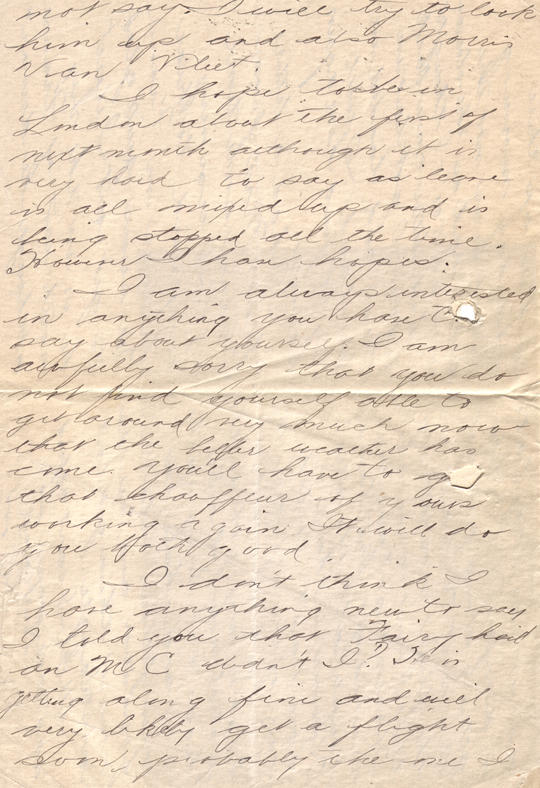 not say. I will try to look
him up and also Morris
Van Vliet.
I hope to be in
London about the first of
next month although it is
very hard to say as leave
is all mixed up and is
being stopped all the time.
However I have hopes.
I am always interested
in anything you have to
say about yourself. I am
awfully sorry that you do
not find yourself able to
get around very much now
that the better weather has
come. You'll have to
that chauffeur of yours
working again It will do
you both good.
I don't think I
have anything new to say
I told you that Fairy had
an M C didn't I? He is
getting along fine and will
very likely get a flight
soon, probably the one I